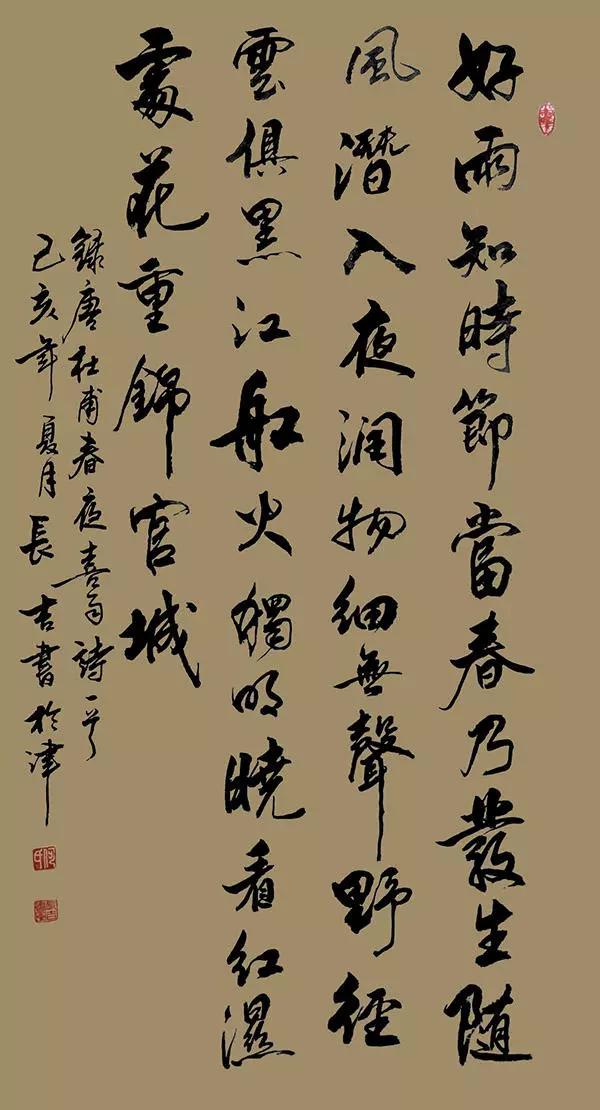 好雨知時節當春乃發生隨
風潛入夜潤物細無聲野徑
雲俱黑江船火獨明曉看紅濕
處花重錦官城
錄唐杜甫春夜喜雨詩一首
己亥年夏月長吉書於津